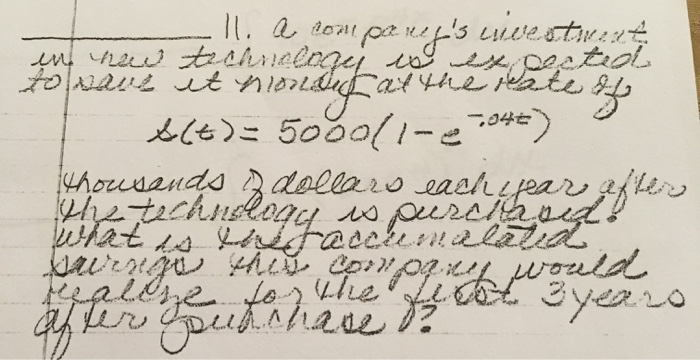 11. A company's investment
in new technology is expected
to save it money at the rate of
s(t) = 5000(1 - e^-.04t)
thousands of dollars each year after
the technology is purchased.
What is the accumalated
savings this company would
realize for the first 3 years
after purchase?